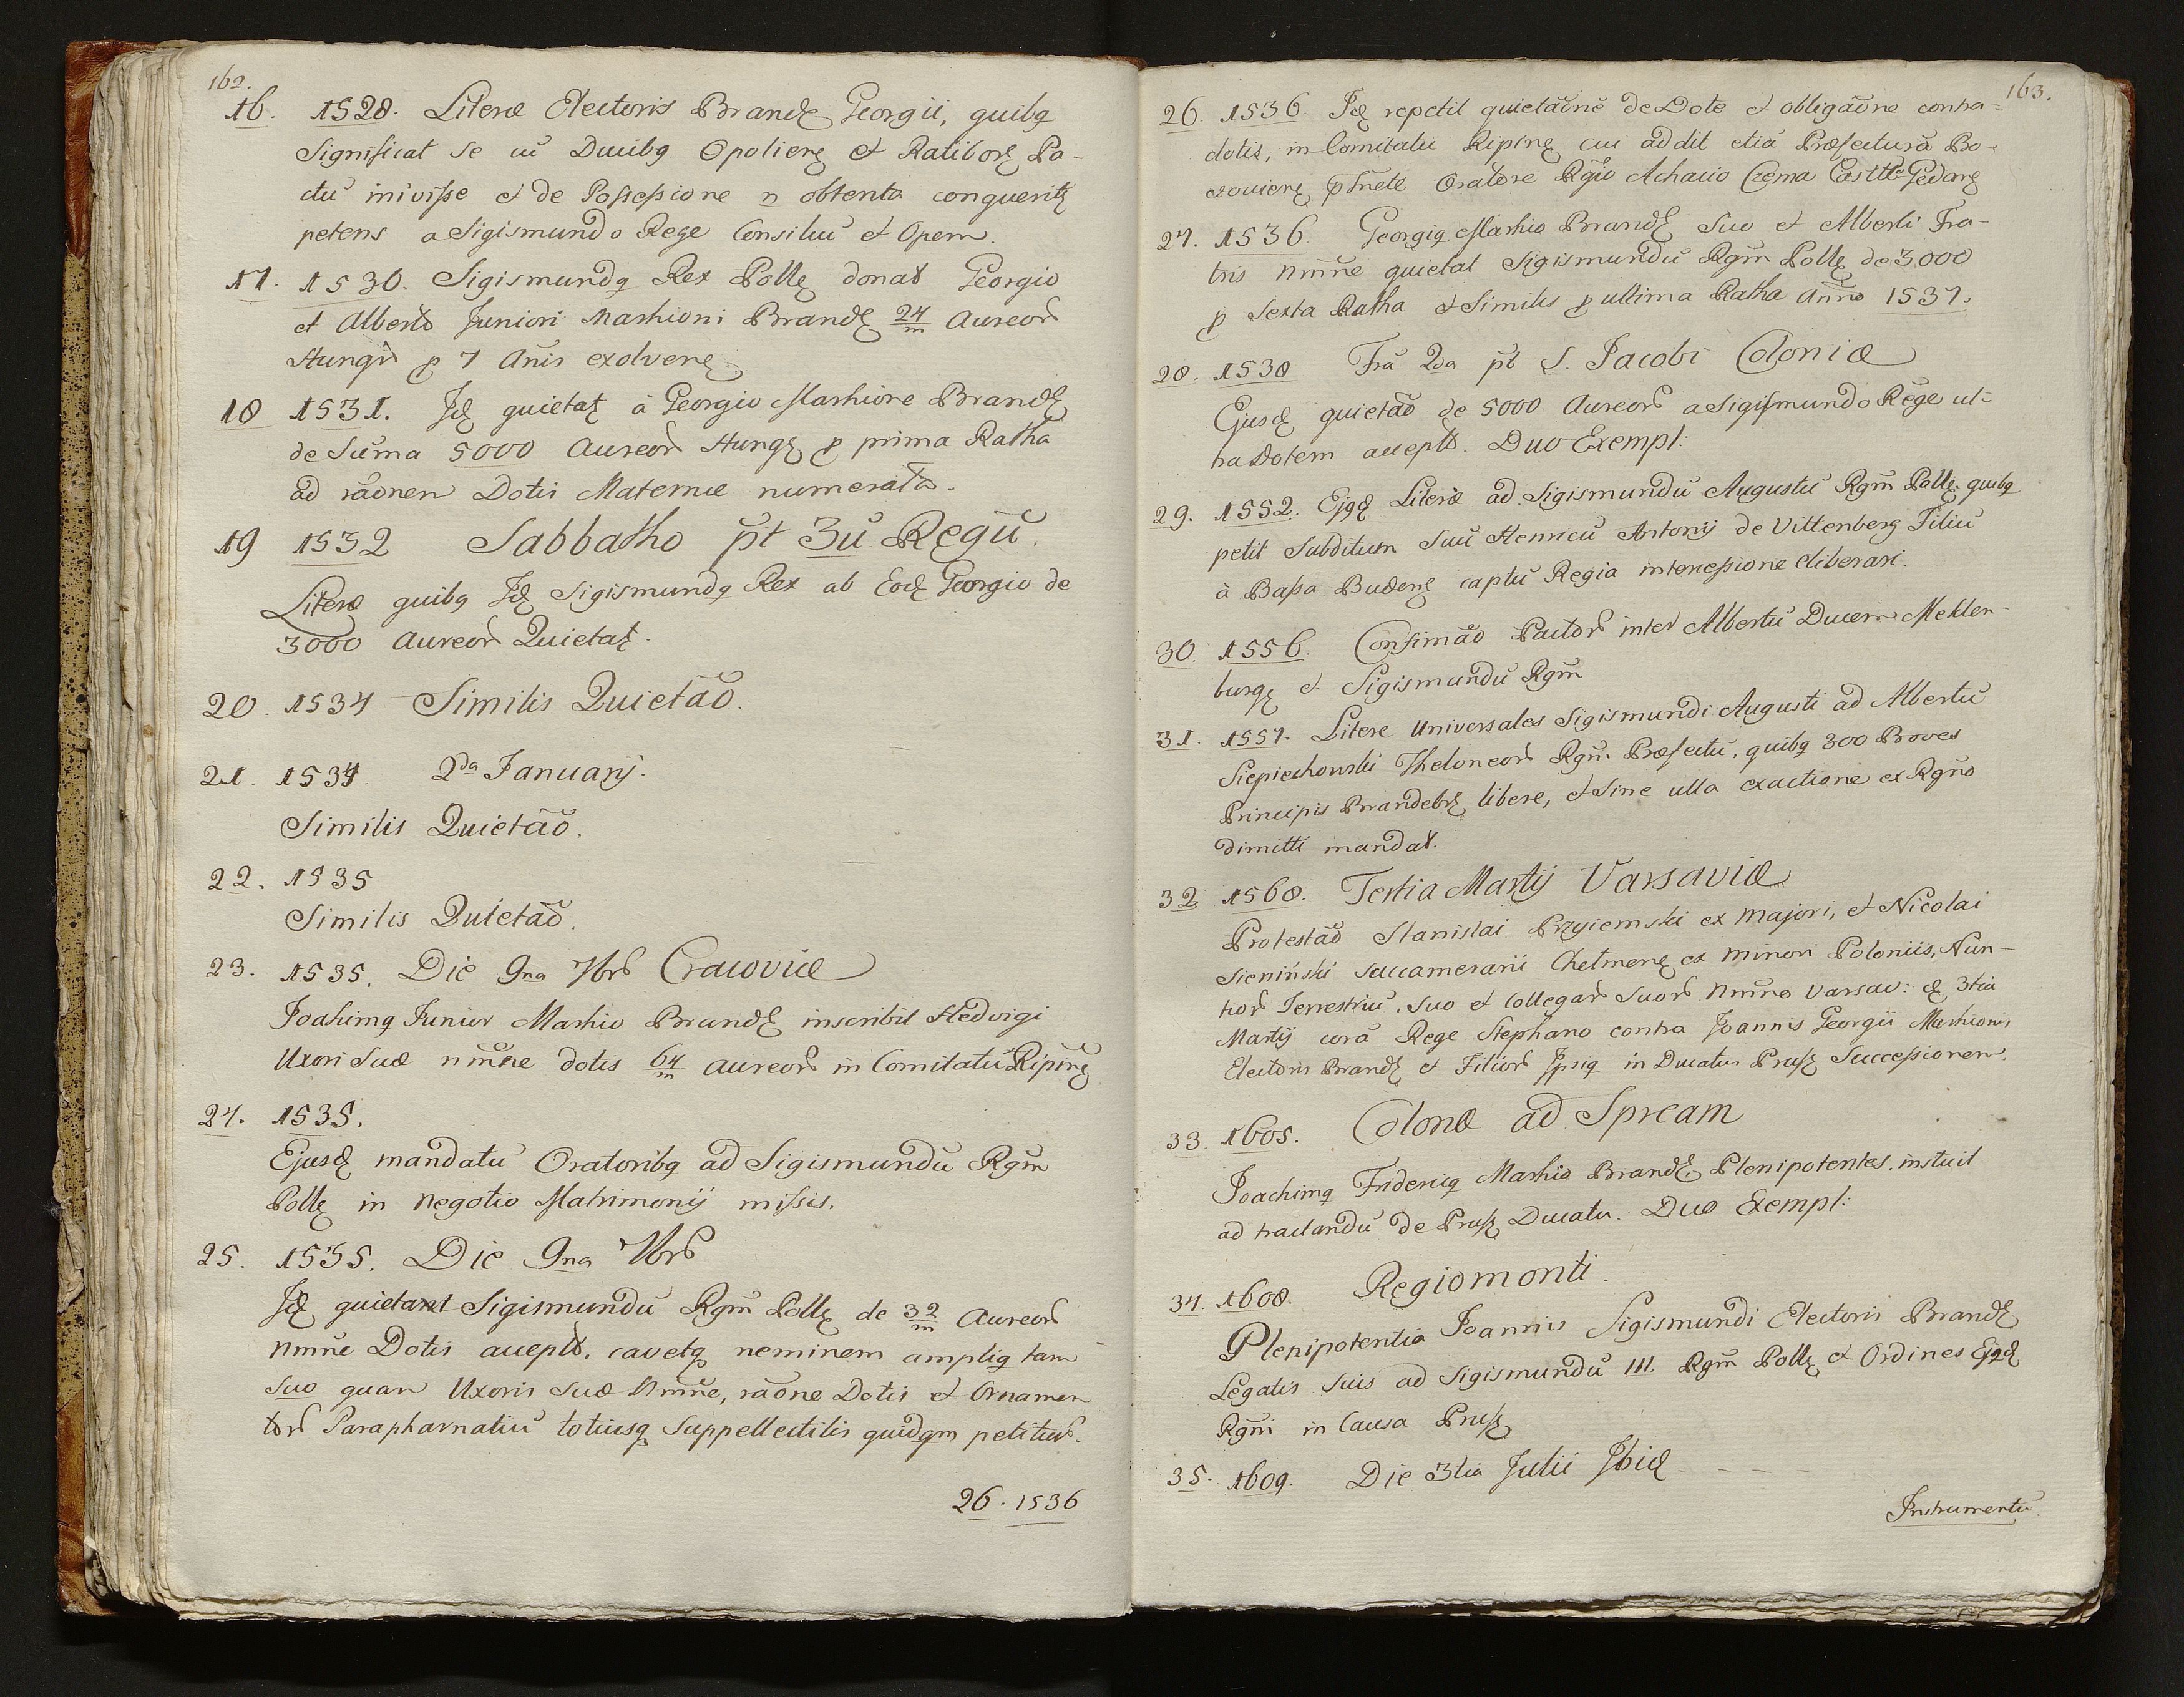 162.
16. 1528. Literæ Electoris Brandę Georgii, quibq
Significat se cũ Ducibq Opolienę et Ratiborę Pa-
ctũ inivisse et de Possessione n obtenta conqueritę
petens a Sigismundo Rege Consiliũ et Opem.
17. 1530. Sigismundq Rex Pollę donat Georgio
et Alberto Juniori Marhioni Brandę 24/m Aureor
Hungr p 7 Anis exolvenę
18 1531. Idę quietatę à Georgio Marhione Brandę
de Sũma 5000 Aureor Hungę p prima Ratha
ad rãonem Dotis Maternæ numerata.
19 1532 Sabbatho p̃t 3ũ Regũ.
Literæ quibq Idę Sigismundq Rex ab Eodę Georgio de
3000 Aureor Quietatę.
20. 1534 Similis Quietão.
21. 1534 2da Januarij.
Similis Quietão.
22. 1535
Similis Quietão.
23. 1535. Die 9na 7br Cracoviæ
Joahimq Junior Marhio Brandę inscribit Hedvigi
Uxori Suæ nm̃ne dotis 64/m aureor in Comitatũ Ripinę
24. 1535.
Ejusdę mandatũ Oratoribq ad Sigismundũ Rgm̃
Pollę in Negotio Matrimonij missis.
25. 1535. Die 9na 7br
Idę quietant Sigismundũ Rgm̃ Pollę de 32/m Aureor
nm̃ne Dotis accept. cavetq neminem ampliq tam
Suo quam Uxoris Suæ Nm̃ne, rãone Dotis et Ornamen
tor Parapharnaliũ totiusq Suppellectilis quidqm petitur.
26. 1536
163.
26. 1536. Idę repetit quietãonẽ de Dote et obligãone contra=
dotis, in Comitatu Ripinę cui addit etiã Præfecturã Bo-
czovienę p̃sñete Oratore Rg̃io Achacio Czema Castllo Gedanę
27. 1536. Georgiq Marhio Brandę Suo et Alberti Fra-
tris nm̃ne quietat Sigismundũ Rgm̃ Pollę de 3000
p Sexta Ratha et Similis p ultima Ratha Anno 1537.
28. 1538 Frã 2da p̃t S. Jacobi Coloniæ
Ejusdę quietão de 5000 Aureor a Sigismundo Rege ul=
tra Dotem accept. Duo Exempl:
29. 1552. Ejqdę Literæ ad Sigismundũ Augustũ Rgm̃ Pollę. quibq
petit Subditum Suũ Henricũ Antonij de Vittenberg Filiũ
à Bassa Budenę captũ Regia intercessione eliberari.
30. 1556. Confirmão Pactor inter Albertũ Ducem Meklen-
burgę et Sigismundũ Rgm̃
31. 1557. Litere Universales Sigismundi Augusti ad Albertũ
Siepiechowski Theloneor Rgñ. Præfectũ, quibq 300 Boves
Principis Brandebrę libere, et Sine ulla exactione ex Rgño
dimitti mandat.
32 1568. Tertia Martij Varsaviæ
Protestão Stanislai Przyiemski ex Majori, et Nicolai
Sieniński Succamerarii Chelmenę ex Minori Poloniis, Nun-
tior Terrestriũ, Suo et Collegar Suor Nm̃ne Varsav: dę 3tia
Martij corã Rege Stephano contra Joannis Georgii Marhionis
Electoris Brandę et Filior Ipsiq in Ducatum Prusę Successionem.
33. 1605. Colonæ ad Spream
Joachimq Fridericq Marhio Brandę Plenipotentes instuit
ad tractandũ de Prusę Ducatu. Duo Exempl:
34. 1608. Regiomonti.
Plenipotentia Joannis Sigismundi Electoris Brandę
Legatis Suis ad Sigismundũ III. Rgm̃ Pollę et Ordines Ejqdę
Rgñi in Causa Prusę
35. 1609. Die 3tia Julii Ibidę - - - -
Instrumentũ.